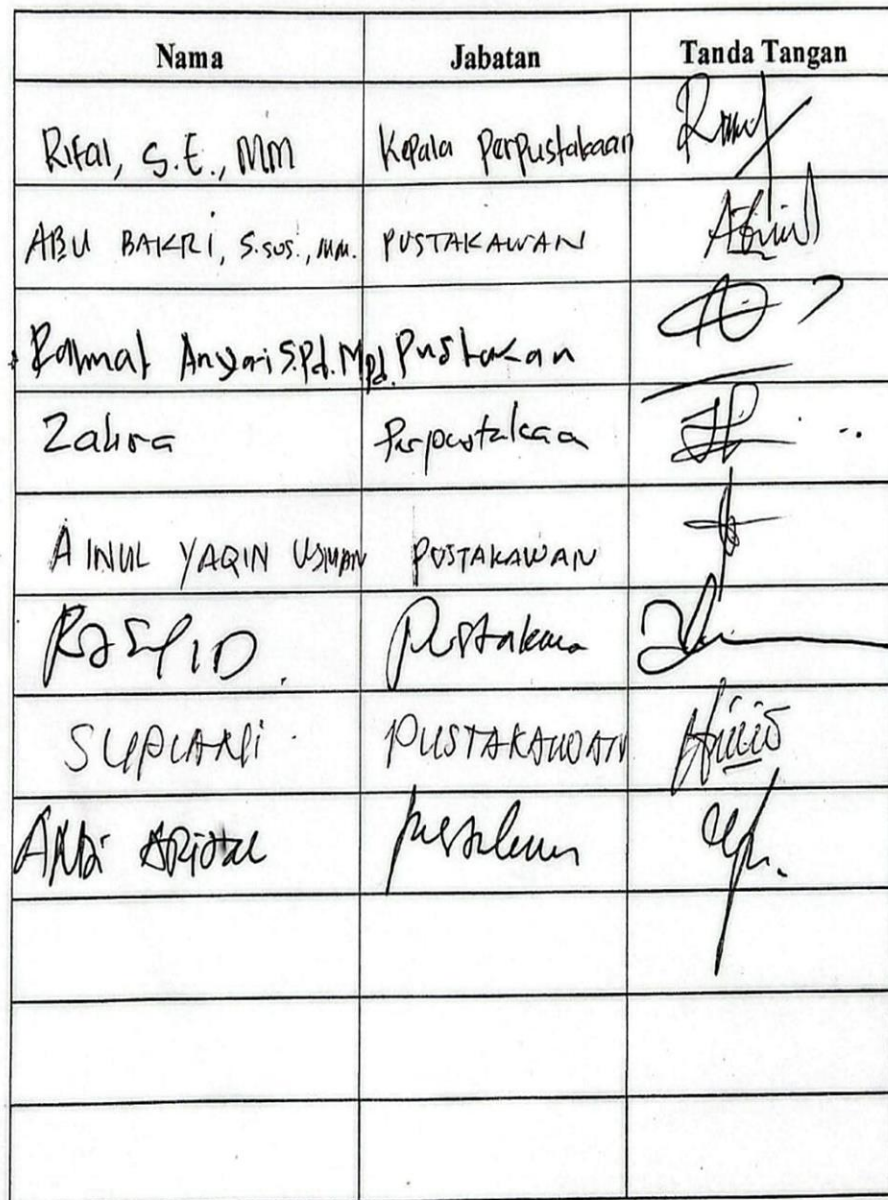 Nama Jabatan Tanda Tangan
Rifal, S.E., MM Kepala Perpustakaan
ABU BAKRI, S.SOS., MM. PUSTAKAWAN
Rahmat Ansari S.Pd. M.pd. Pustakan
Zahra Perpustakaa
AINUL YAQIN USMAN PUSTAKAWAN
RASYID.
SUPIANI PUSTAKAWAN